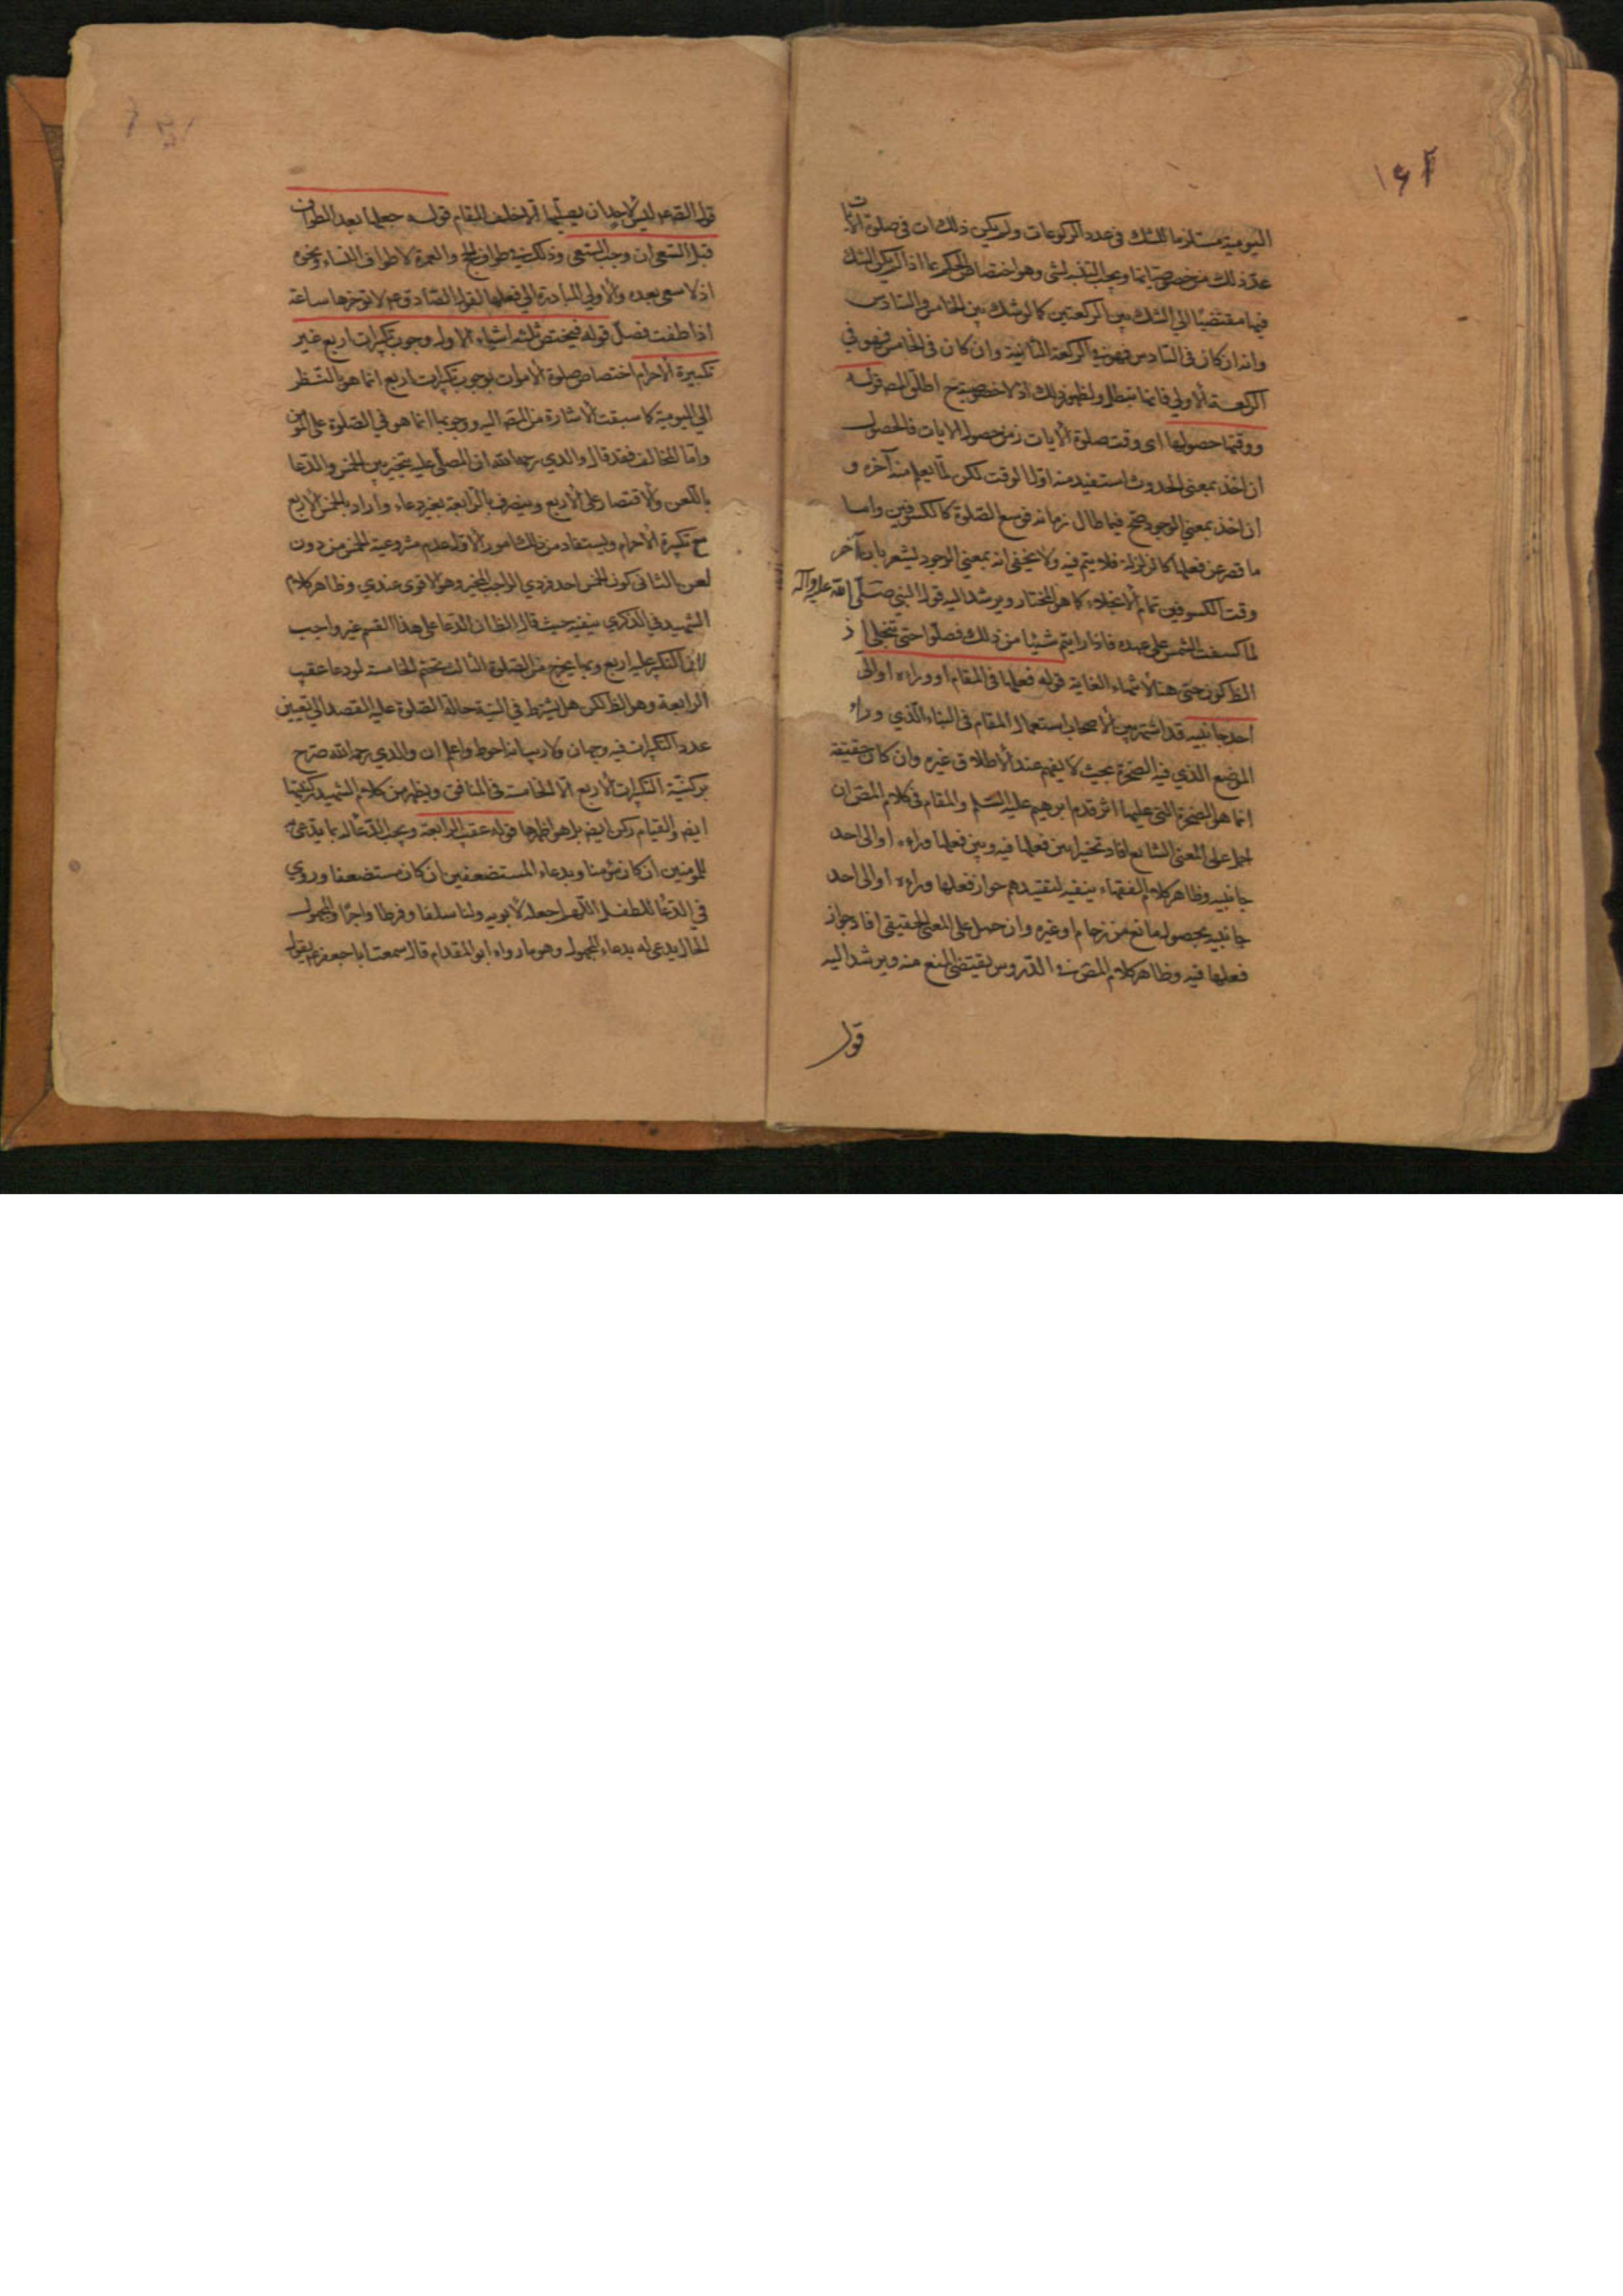 ١٤٢
اليومية مستلزما للشك في عدد الركوعات ولم يكن ذلك ات في صلوة الآيات
عدّ ذلك من خصوصياتها ويجب التنبه لشئ وهو اختصاص الحكم بما اذا لم يكن الشك
فيها مقتضيا الى الشك بين الركعتين كما لو شك بين الخامس والسادس
وانه ان كان في السادس فهو في الركعة الثانية وان كان في الخامس فهو في
الركعة الاولى فانها تبطل ولظهور ذلك اذ لا خصوصية ح اطلق المص قوله
ووقتها حصولها اى وقت صلوة الآيات زمن حصول الايات فالحصول
ان اخذ بمعنى الحدوث استفيد منه اول الوقت لكن لم يعلم منه آخره و
ان اخذ بمعنى الوجود صح فيما طال زمانه فوسع الصلوة كالكسوفين واما
ما قصر عن فعلها كالزلزلة فلا يتم فيه ولا يخفى انه بمعنى الوجود ليشعر بان آخر
وقت الكسوفين تمام الانجلاء كما هو المختار ويرشد اليه قول النبي صلّى الله عليه وآله
لما كسفت الشمس على عهده فاذا رايتم شيئا من ذلك فصلّوا حتى تنجلى اذ
الظ كون حتى هنا لانتهاء الغاية قوله فعلها في المقام او وراءه او الى
احد جانبيه قد اشتهر بين الاصحاب استعمال المقام في البناء الّذي وراء
الموضع الذي فيه الصخرة بحيث لا يفهم عند الاطلاق غيره وان كان حقيقة
انما هو الصخرة التى عليها اثر قدم ابرهيم عليه السّلم والمقام في كلام المص ان
حمل على المعنى الشايع افاد تخييرا بين فعلها فيه وبين فعلها وراءه او الى احد
جانبيه وظاهر كلام الفقهاء ينفيه لتقييدهم جواز فعلها وراءه او الى احد
جانبيه بحصول مانع من زحام او غيره وان حمل على المعنى الحقيقي افاد جواز
فعلها فيه وظاهر كلام المص في الدروس يقتضى المنع منه ويرشد اليه
قول
قول الص ع ليس لاحد ان يصلّيها الا خلف المقام قوله جعلها بعد الطواف
قبل السعى ان وجب السّعى وذلك في طواف الحج والعمرة لا طواف النساء ونحوه
اذ لا سعى بعده والاولى المبادرة الى فعلها لقول الصّادق ع لا تؤخرها ساعة
اذا طفت فصلّ قوله فيختص ثلثة اشياء الاول وجوب تكبيرات اربع غير
تكبيرة الاحرام اختصاص صلوة الاموات بوجوب تكبيرات اربع انما هو بالنّظر
الى اليومية كما سبقت الاشارة من المص اليه ووجوبها انما هو في الصّلوة على المؤمن
وامّا المخالف فقد قال والدي رحمه الله ان المصلّى عليه يتخير بين الخمس والدّعا
باللّعن والاقتصار على الاربع وينصرف بالرّابعة بغير دعاء واراد بالخمس الاربع
مع تكبيرة الاحرام ويستفاد من ذلك امور الاول عدم مشروعية الخمس من دون
لعن الثانى كون الخمس احد فردي الواجب المخير وهو الاقوى عندي وظاهر كلام
الشهيد في الذكرى ينفيه حيث قال الظ ان الدّعا على هذا القسم غير واجب
لان التكبير عليه اربع وبها يخرج من الصلوة الثالث تحتم الخامسة لو دعا عقيب
الرابعة وهو الظ لكن هل يشترط في النيّة حالة الصّلوة عليه القصد الى تعيين
عدد التكبيرات فيه وجهان ولا ريب انه احوط واعلم ان والدي رحمه الله صرّح
بركنيّة التكبيرات الاربع الّا الخامسة في المنافق ويظهر من كلام الشهيد ركنيتها
ايض والقيام ركن ايض بل هو اظهرها قوله عقيب الرابعة ويجب الدّعا له بما يدعى
للمؤمنين ان كان مؤمنا وبدعاء المستضعفين ان كان مستضعفا وروى
في الدعا للطفل اللّهم اجعله لابويه ولنا سلفا وفرطا واجرًا والمجهول
الحال يدعى له بدعاء المجهول وهو ما رواه ابو المقدام قال سمعت ابا جعفر ع يقول